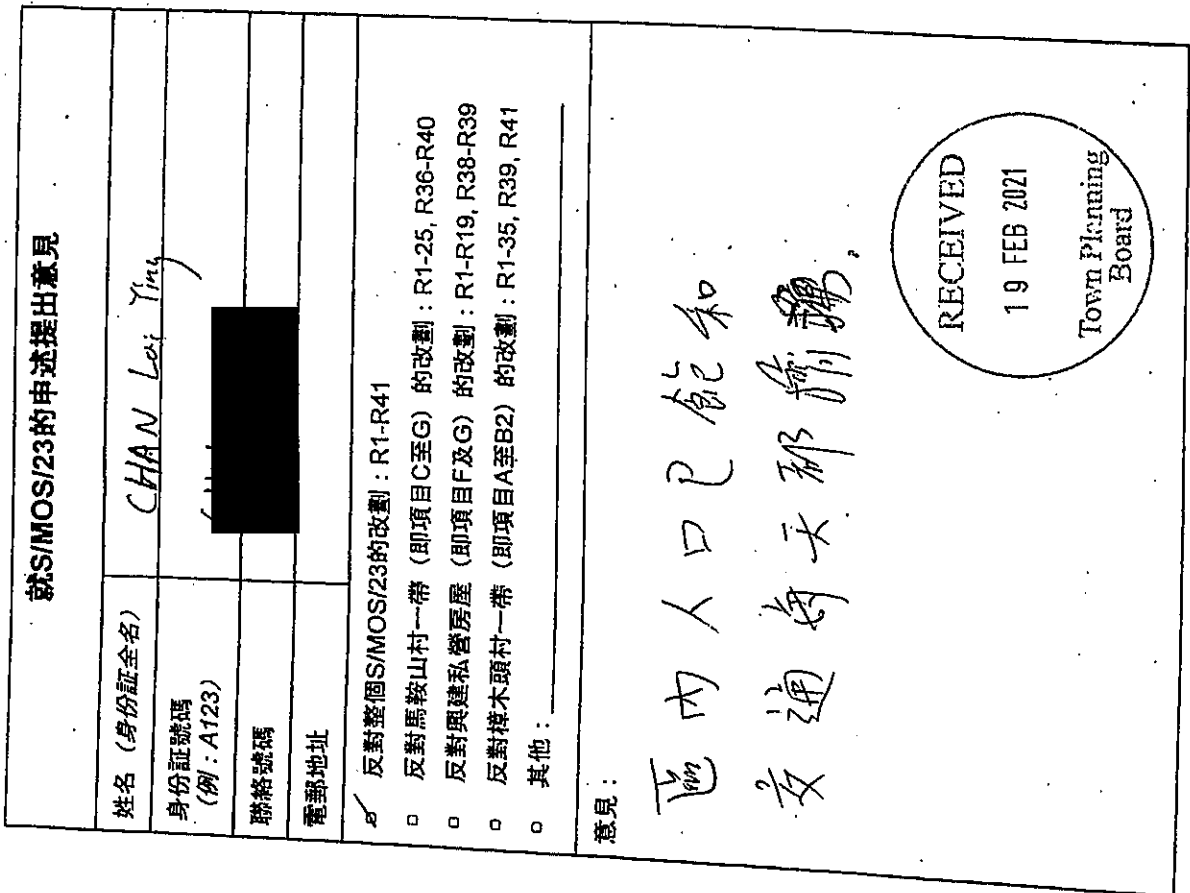 就S/MOS/23的申述提出意見
姓名（身份証全名）
CHAN Lai Ying
身份証號碼
（例：A123）
聯絡號碼
電郵地址
反對整個S/MOS/23的改劃：R1-R41
反對馬鞍山村一帶（即項目C至G）的改劃：R1-25, R36-R40
反對興建私營房屋（即項目F及G）的改劃：R1-R19, R38-R39
反對樟木頭村一帶（即項目A至B2）的改劃：R1-35, R39, R41
其他：
意見：
區內人口已飽和
交通每天都擠擁。
RECEIVED
19 FEB 2021
Town Planning
Board